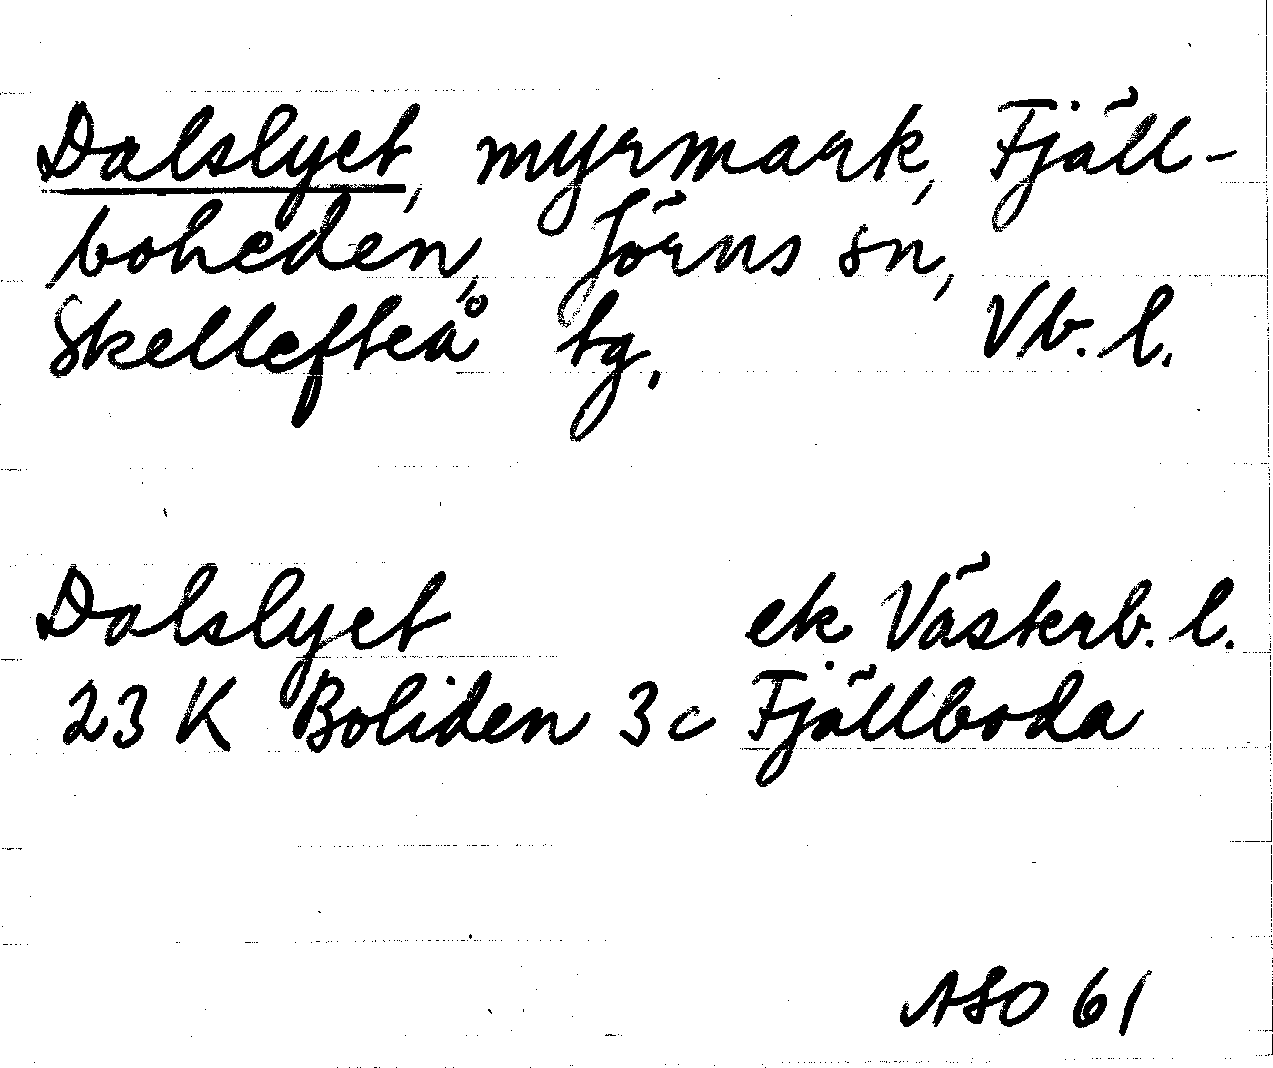 Dalslyet, myrmark, Fjäll-
boheden, Jörns sn,
Skellefteå tg. Vb. l.
Dalslyet ek Västerb. l.
23 K Boliden 3c Fjällboda
ASO 61